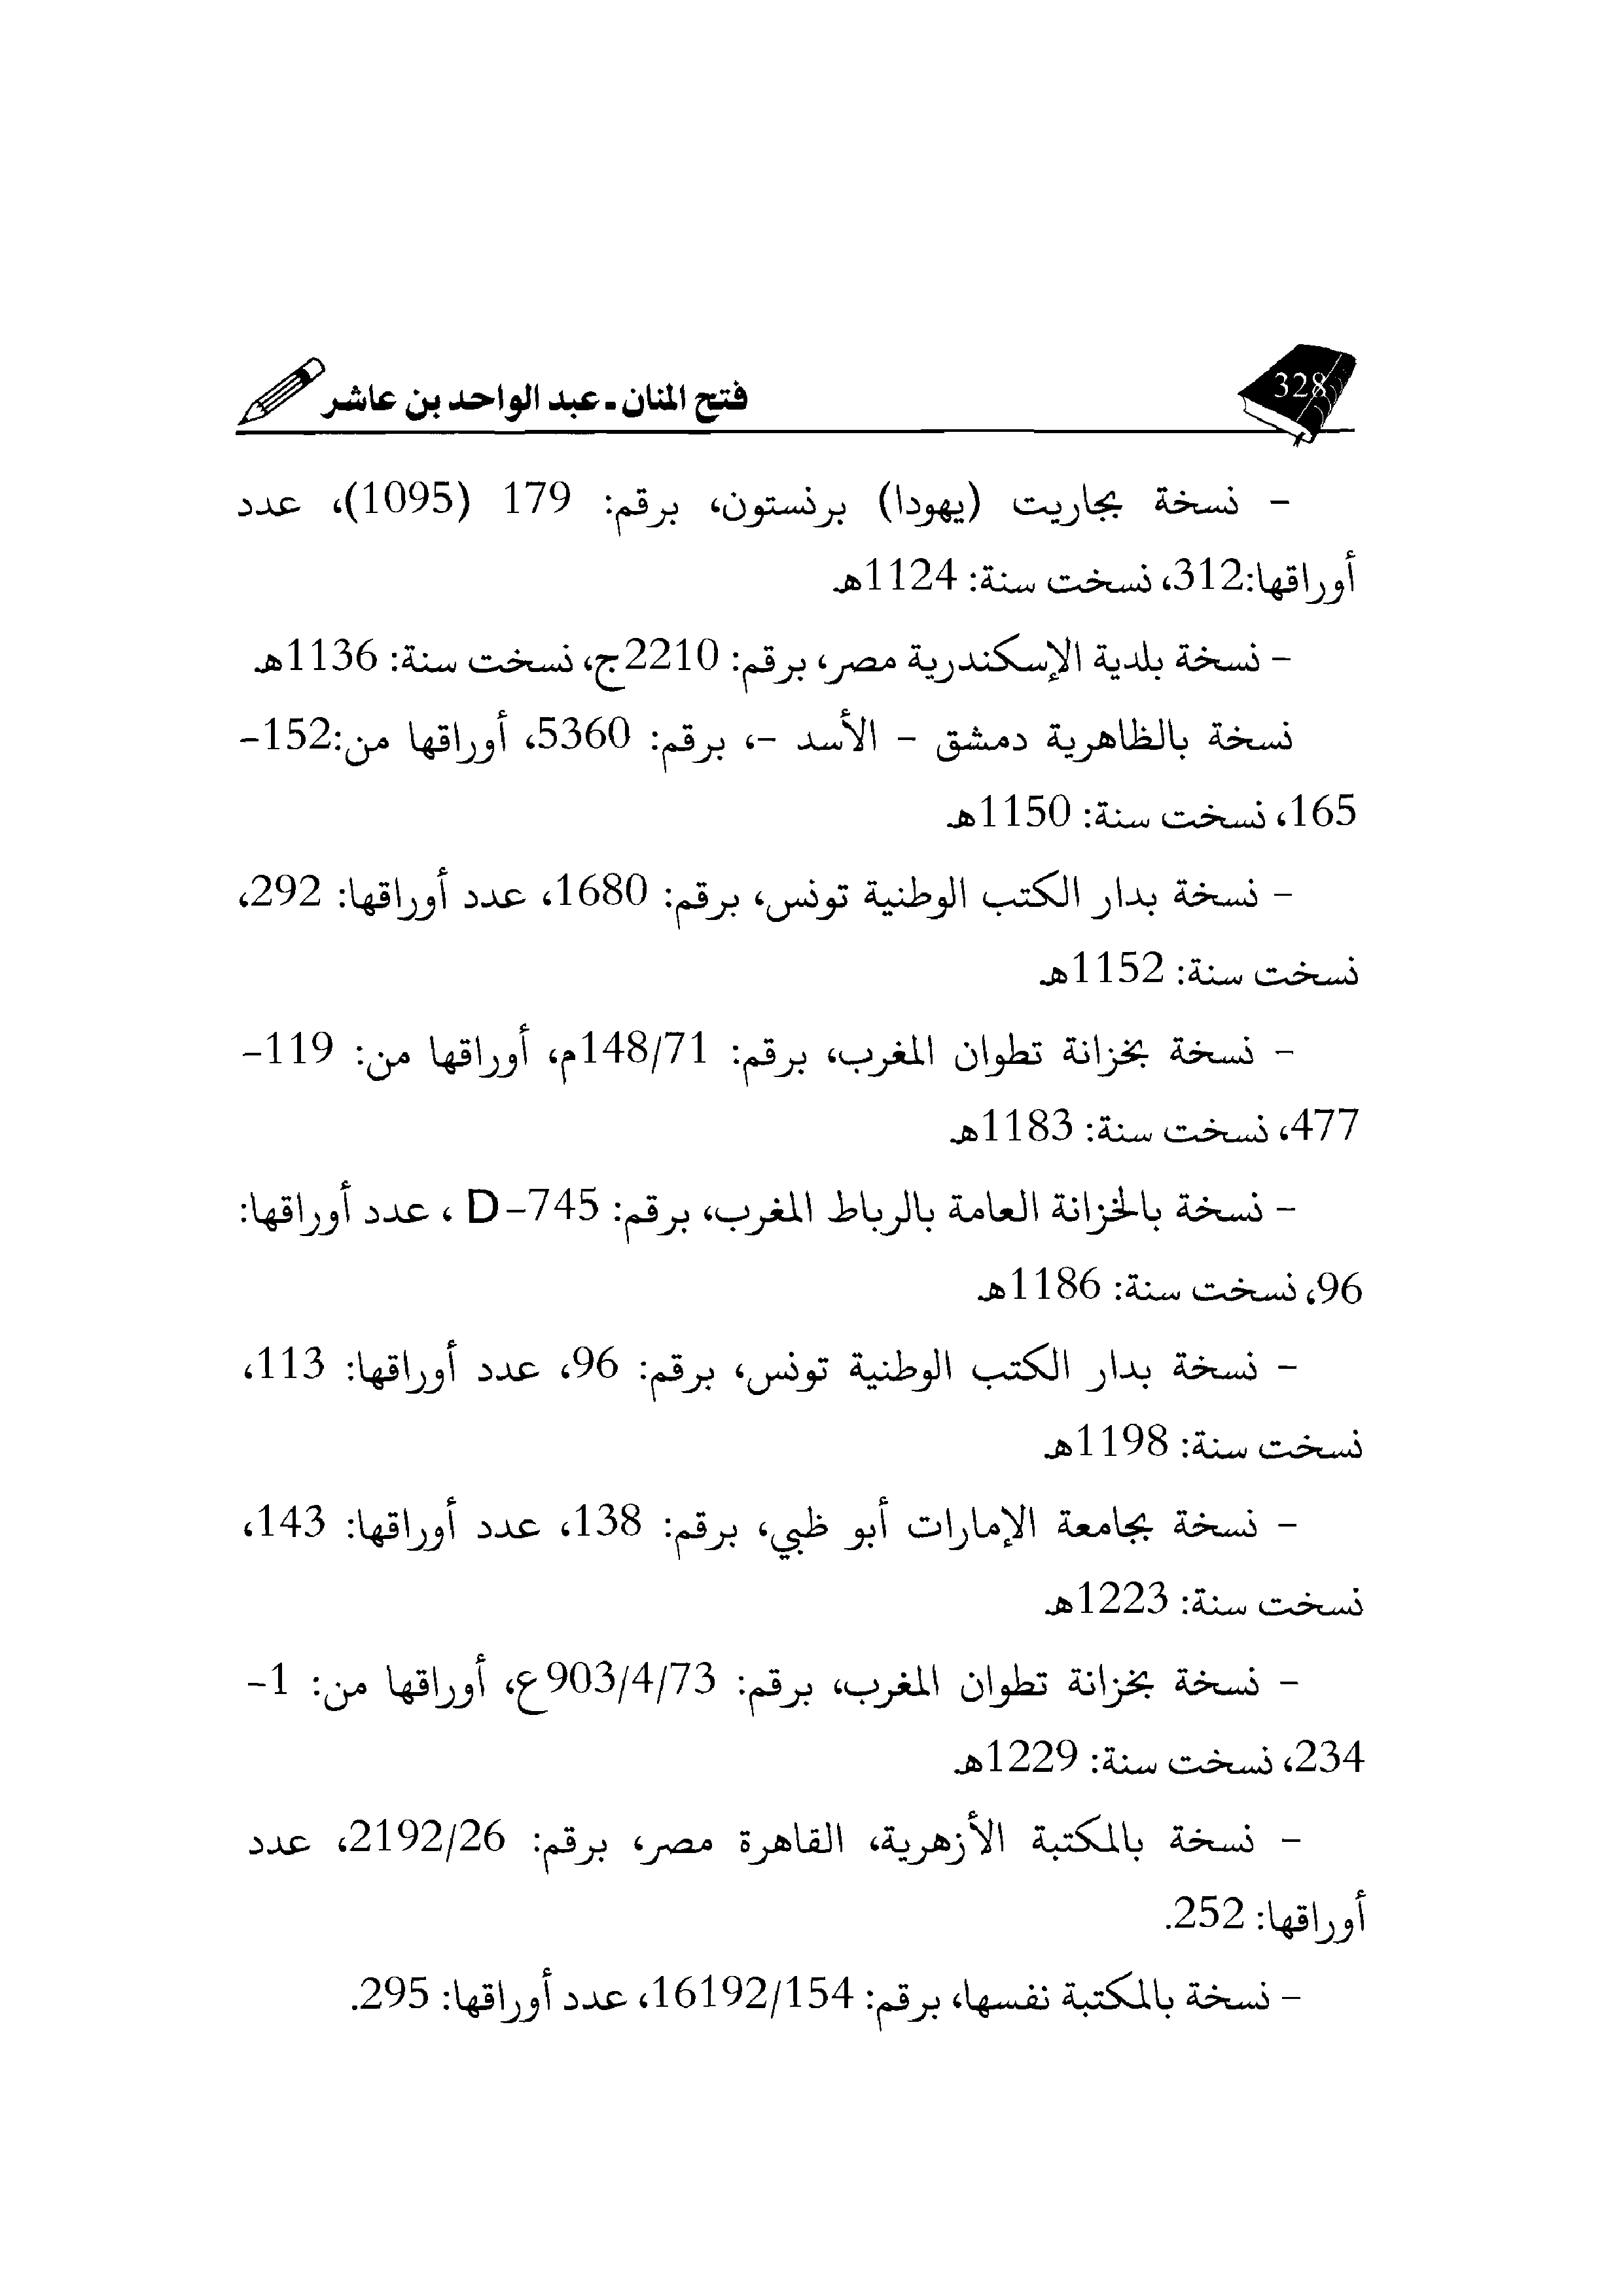 328
فتح المنان ـ عبد الواحد بن عاشر
- نسخة بجاريت (يهودا) برنستون، برقم: 179 (1095)، عدد
أوراقها:312، نسخت سنة: 1124هـ
- نسخة بلدية الإسكندرية مصر، برقم: 2210ج، نسخت سنة: 1136هـ
نسخة بالظاهرية دمشق - الأسد -، برقم: 5360، أوراقها من:152-
165، نسخت سنة: 1150هـ
- نسخة بدار الكتب الوطنية تونس، برقم: 1680، عدد أوراقها: 292،
نسخت سنة: 1152هـ
- نسخة بخزانة تطوان المغرب، برقم: 148/71م، أوراقها من: 119-
477، نسخت سنة: 1183هـ
- نسخة بالخزانة العامة بالرباط المغرب، برقم: D-745 ، عدد أوراقها:
96، نسخت سنة: 1186هـ
- نسخة بدار الكتب الوطنية تونس، برقم: 96، عدد أوراقها: 113،
نسخت سنة: 1198هـ
- نسخة بجامعة الإمارات أبو ظبي، برقم: 138، عدد أوراقها: 143،
نسخت سنة: 1223هـ
- نسخة بخزانة تطوان المغرب، برقم: 903/4/73ع، أوراقها من: 1-
234، نسخت سنة: 1229هـ
- نسخة بالمكتبة الأزهرية، القاهرة مصر، برقم: 2192/26، عدد
أوراقها: 252.
- نسخة بالمكتبة نفسها، برقم: 16192/154، عدد أوراقها: 295.